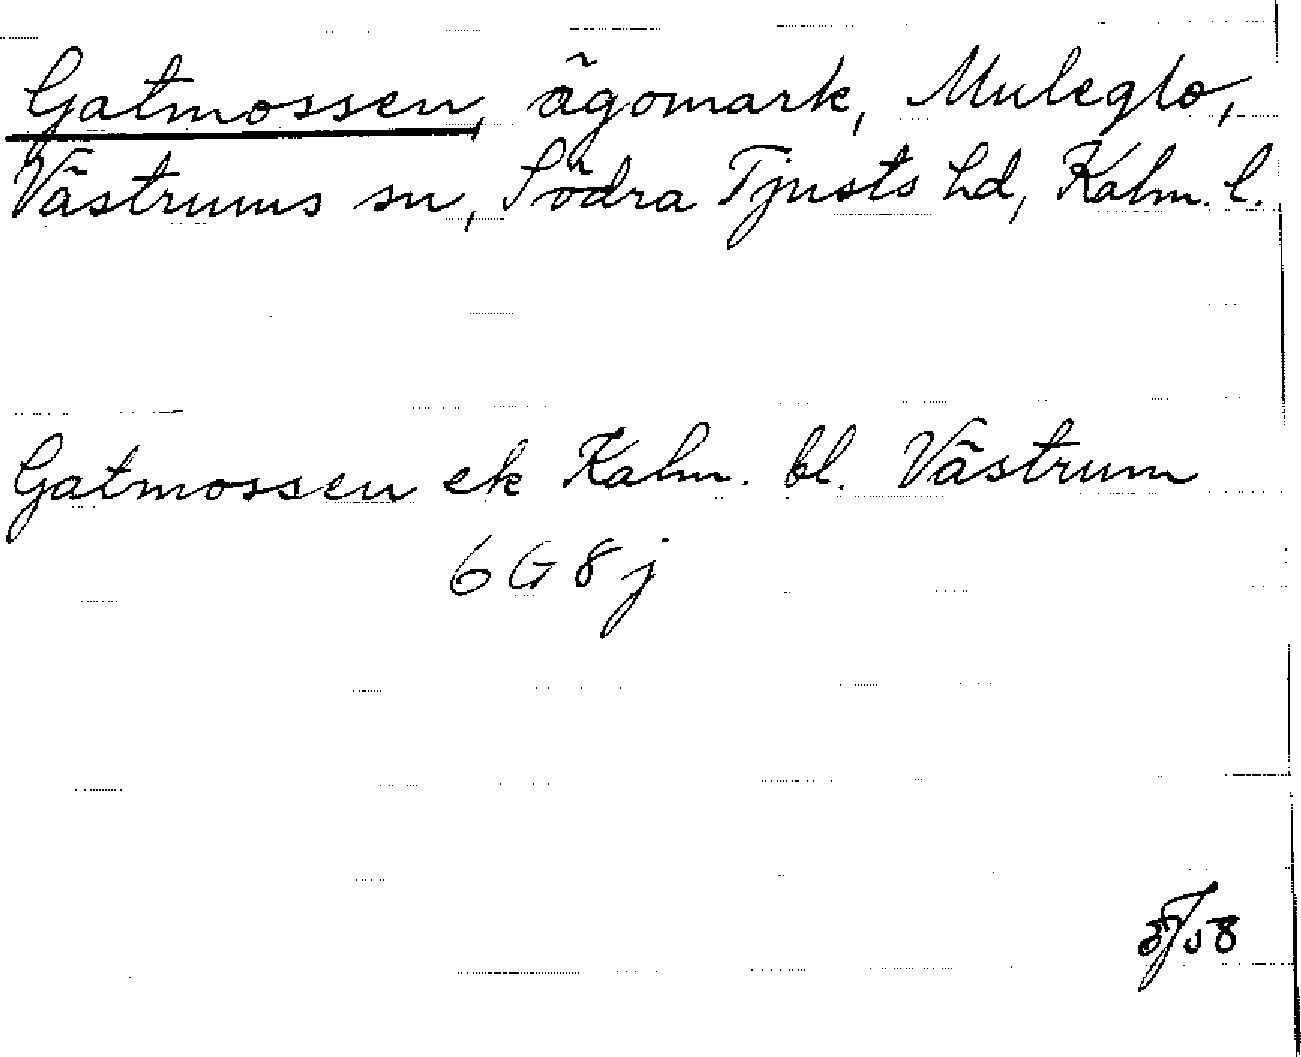 Gatmossen, ägomark, Muleglo,
Västrums sn, Södra Tjusts hd, Kalm. l.
Gatmossen ek Kalm. bl. Västrum
6 G 8 j